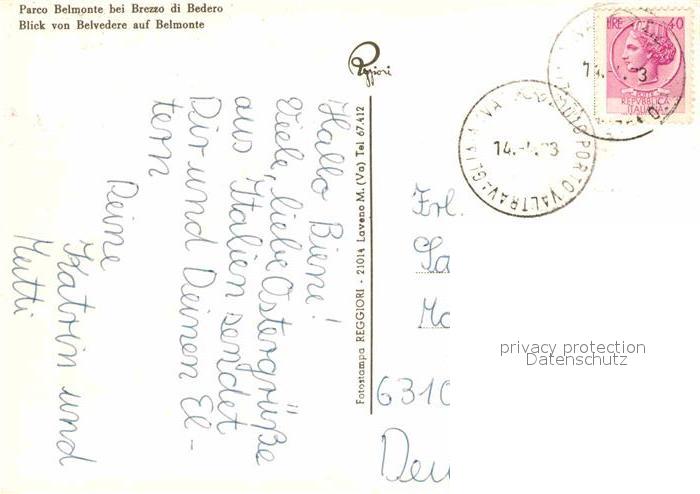 Parco Belmonte bei Brezzo di Bedero
Blick von Belvedere auf Belmonte
Hallo Biene!
Viele, liebe Ostergrüße
aus Italien sendet
Dir und Deinen El-
tern
Deine
Katrin und
Mutti
Reggiori
Fotostampa REGGIORI - 21014 Laveno M. (Va) Tel. 67.412
LIRE 40
REPVBBLICA
ITALIANA
PORTOVALTRAVAGLIA
14.
Frl.
6310
privacy protection
Datenschutz